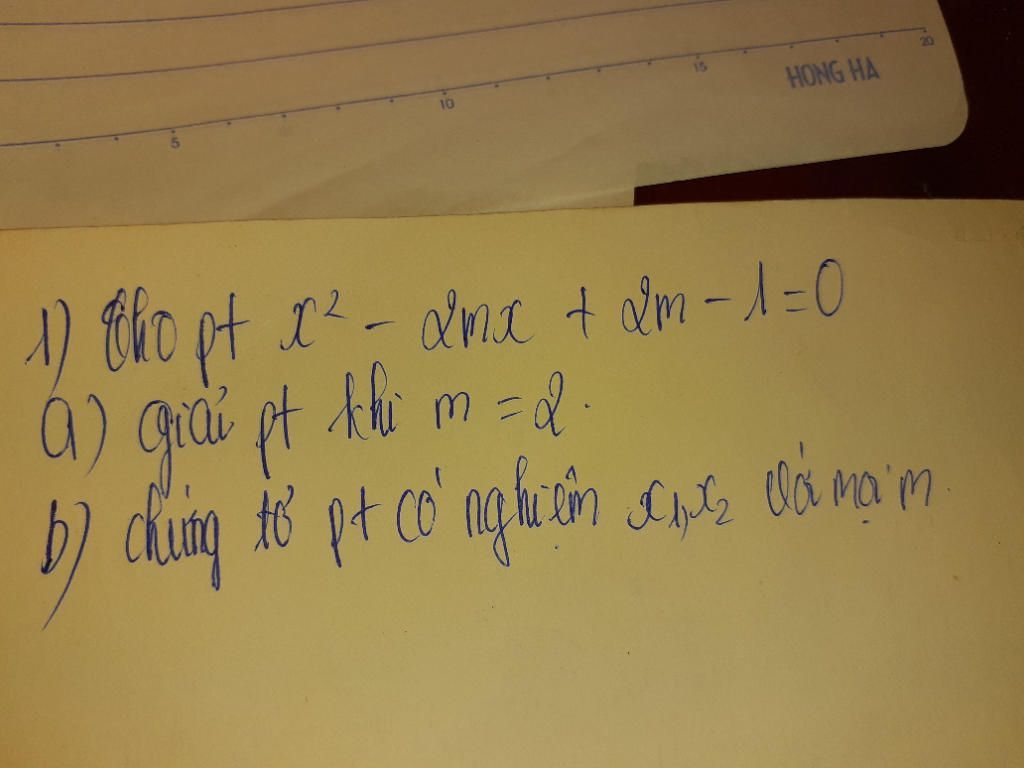 5 10 15 20
HONG HA
1) Cho pt x² - 2mx + 2m - 1 = 0
a) giải pt khi m = 2.
b) chứng tỏ pt có nghiệm x₁, x₂ với mọi m.